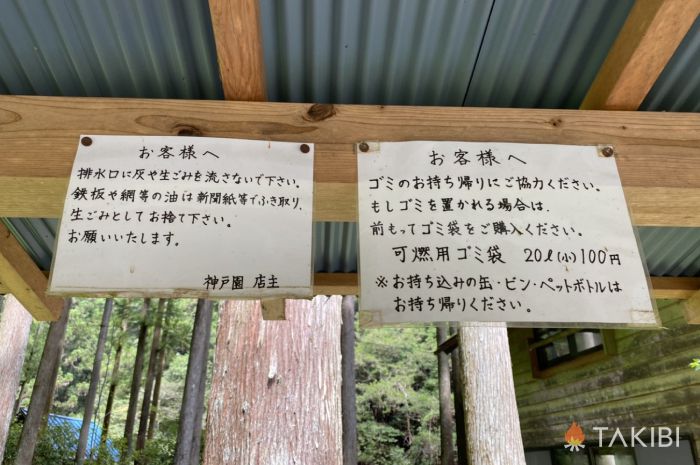 お客様へ
排水口に灰や生ごみを流さないで下さい。
鉄板や網等の油は新聞紙等でふき取り、
生ごみとしてお捨て下さい。
お願いいたします。
神戸園 店主
お客様へ
ゴミのお持ち帰りにご協力ください。
もしゴミを置かれる場合は、
前もってゴミ袋をご購入ください。
可燃用ゴミ袋 20ℓ(小)100円
※お持ち込みの缶・ビン・ペットボトルは
お持ち帰りください。
TAKIBI